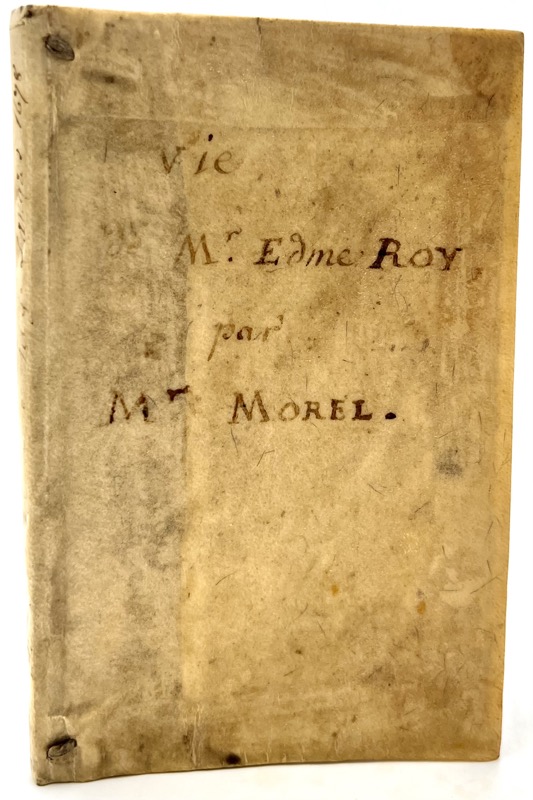 Vie
de Mr. Edme ROY
par
Mr MOREL.